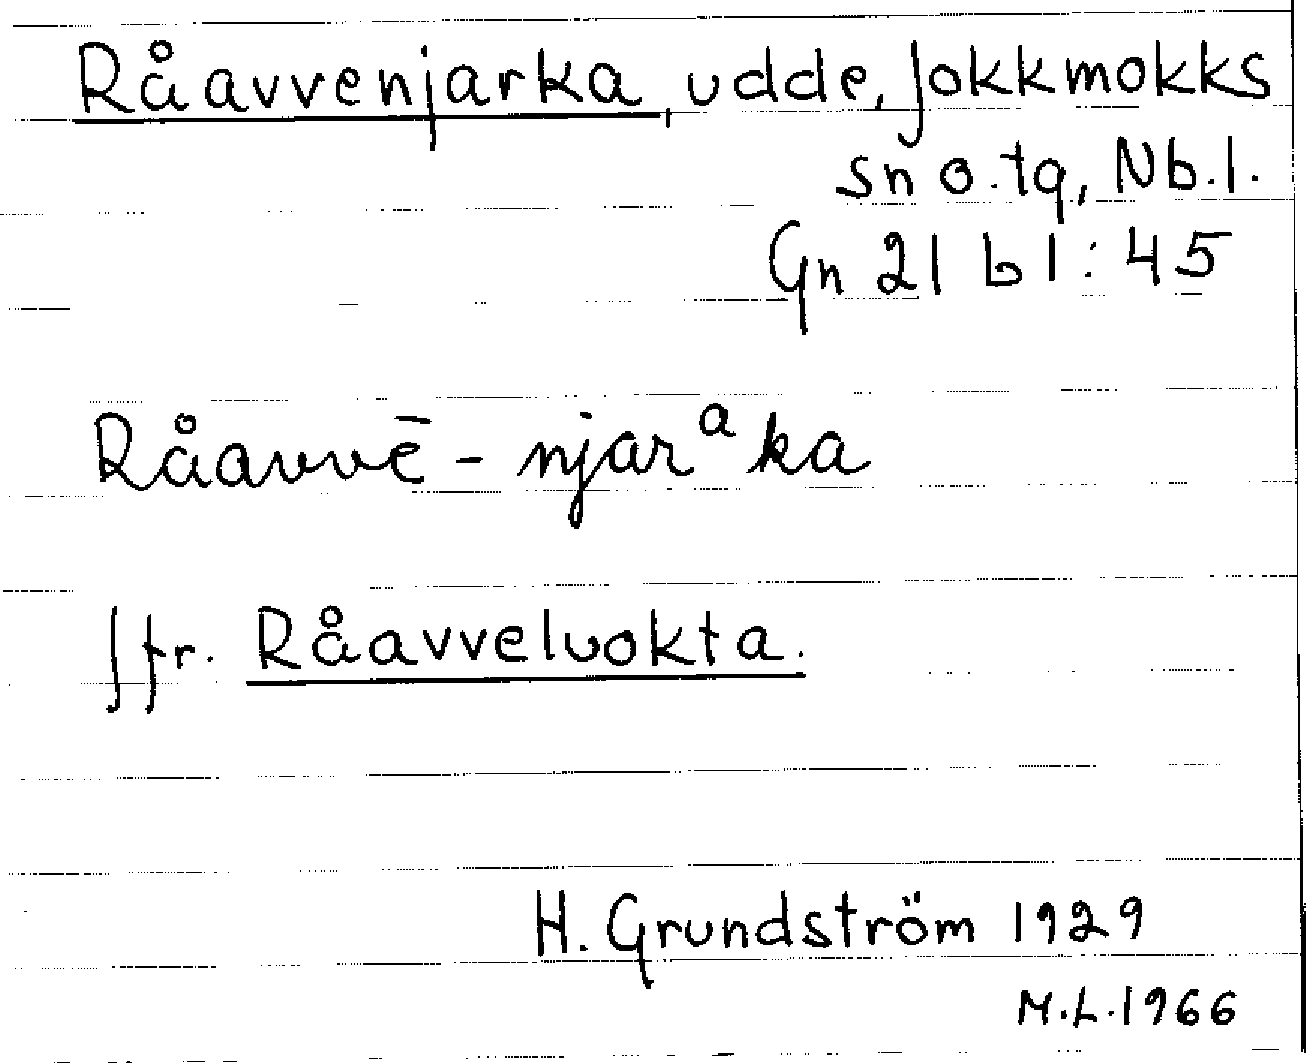 Råavvenjarka, udde, Jokkmokks
sn o. tg, Nb. l.
Gn 21 b 1:45
Råavvē - njarᵃka
Jfr. Råavveluokta.
H. Grundström 1929
M.L. 1966